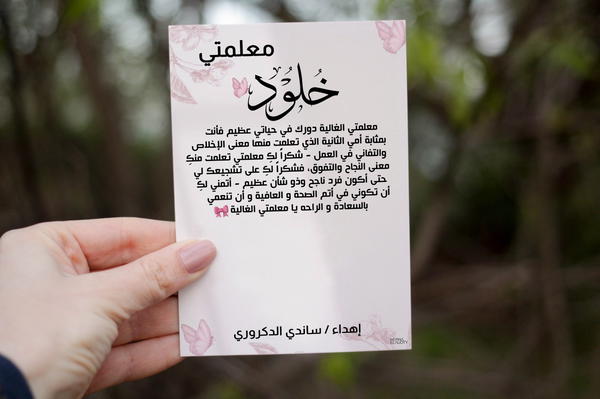 معلمتي
خلود
معلمتي الغالية دورك في حياتي عظيم فأنت
بمثابة أمي الثانية الذي تعلمت منها معنى الإخلاص
والتفاني في العمل - شكراً لكِ معلمتي تعلمت منكِ
معنى النجاح والتفوق، فشكراً لكِ على تشجيعك لي
حتى أكون فرد ناجح وذو شأن عظيم - أتمني لكِ
أن تكوني في أتم الصحة و العافية و أن تنعمي
بالسعادة و الراحه يا معلمتي الغالية
إهداء / ساندي الدكروري